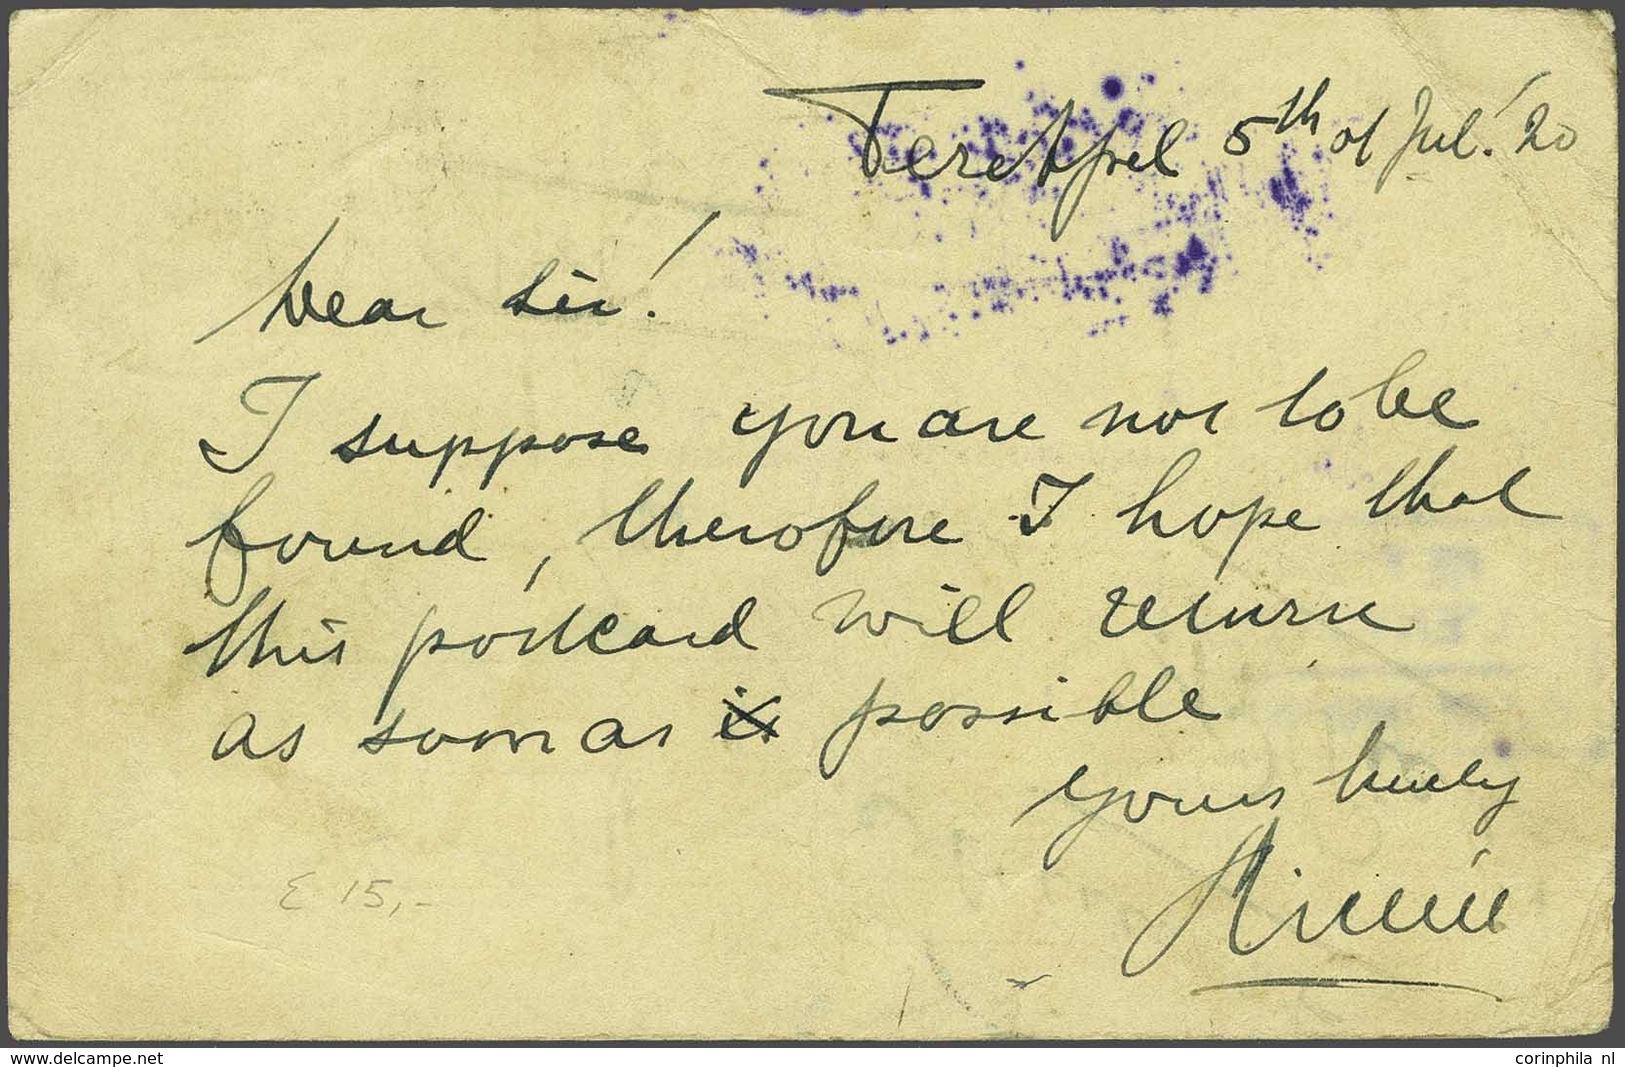 5th of Jul. '20
Dear Sir!
I suppose you are not to be
found, therefore I hope that
this postcard will return
as soon as is possible
Yours truely
£ 15,-
corinphila nl